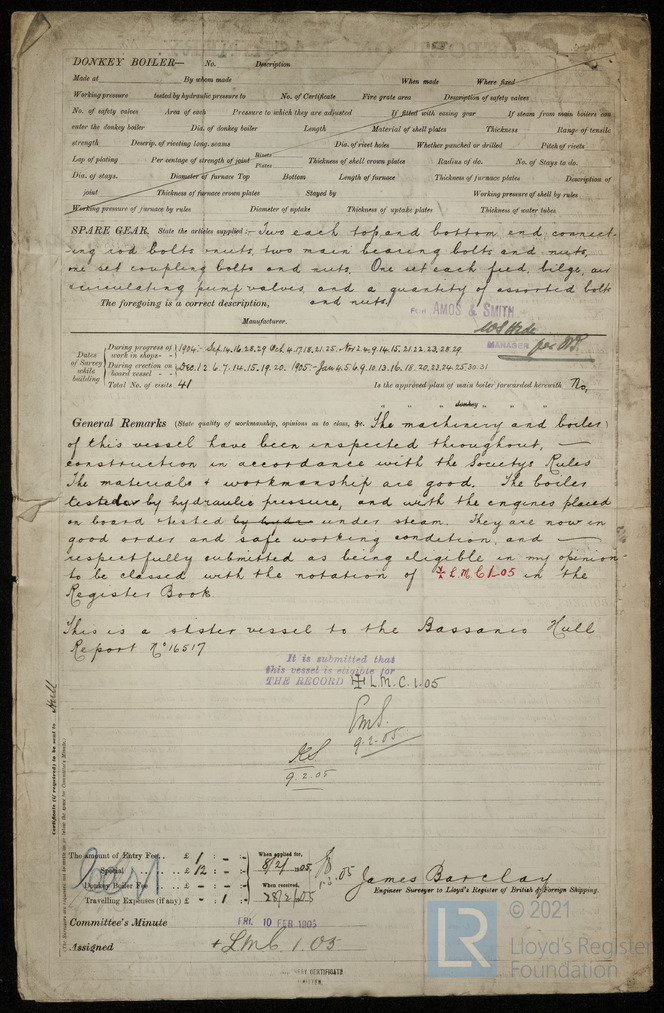 DONKEY BOILER— No. Description
Made at By whom made When made Where fixed
Working pressure tested by hydraulic pressure to No. of Certificate Fire grate area Description of safety valves
No. of safety valves Area of each Pressure to which they are adjusted If fitted with easing gear If steam from main boilers can
enter the donkey boiler Dia. of donkey boiler Length Material of shell plates Thickness Range of tensile
strength Descrip. of riveting long. seams Dia. of rivet holes Whether punched or drilled Pitch of rivets
Lap of plating Per centage of strength of joint Rivets Plates Thickness of shell crown plates Radius of do. No. of Stays to do.
Dia. of stays. Diameter of furnace Top Bottom Length of furnace Thickness of furnace plates Description of
joint Thickness of furnace crown plates Stayed by Working pressure of shell by rules
Working pressure of furnace by rules Diameter of uptake Thickness of uptake plates Thickness of water tubes
SPARE GEAR. State the articles supplied:— Two each top and bottom end connect-
ing rod bolts & nuts, two main bearing bolts and nuts,
one set coupling bolts and nuts. One set each feed, bilge, air
circulating pump valves and a quantity of assorted bolts
and nuts.
The foregoing is a correct description,
FOR AMOS & SMITH
Manufacturer.
MANAGER per
Dates of Survey while building
During progress of work in shops - - 1904:- Sep. 14. 16. 28. 29 Oct. 4. 17. 18. 21. 25. Nov 2. 4. 9. 14. 15. 21. 22. 23. 28. 29.
During erection on board vessel - - - Dec. 1. 2. 6. 7. 14. 15. 19. 20. 1905:- Jan 4. 5. 6. 9. 10. 13. 16. 18. 20. 23. 24. 25. 30. 31
Total No. of visits 41 Is the approved plan of main boiler forwarded herewith No.
" " " donkey " " "
General Remarks (State quality of workmanship, opinions as to class, &c. The machinery and boiler
of this vessel have been inspected throughout, —
construction in accordance with the Societys Rules
The materials & workmanship are good. The boiler
tested by hydraulic pressure, and with the engines placed
on board tested by hydr under steam. They are now in
good order and safe working condition, and —
respectfully submitted as being eligible in my opinion
to be classed with the notation of ✠ L.M.C. 1.05 in the
Register Book.
This is a sister vessel to the Bassanio Hull
Report No 16517
It is submitted that
this vessel is eligible for
THE RECORD ✠ L.M.C. 1.05
9.2.05
9.2.05
Certificate (if required) to be sent to Hull
The amount of Entry Fee.. £ 1 : - : - When applied for,
Special £ 12 : - : - 8/2/1905
Donkey Boiler Fee £ : : When received,
Travelling Expenses (if any) £ - : 1 : - 28/2/05
James Barclay
Engineer Surveyor to Lloyd's Register of British & Foreign Shipping.
Committee's Minute FRI. 10 FEB 1905
Assigned + LMC. 1.05
CERTIFICATE
WRITTEN
© 2021
LR
Lloyd's Register
Foundation